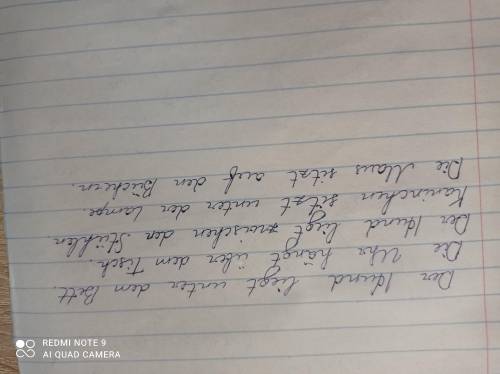 Der Hund liegt unter dem Bett.
Die Uhr hängt über dem Tisch.
Der Hund liegt zwischen den Stühlen
Kaninchen sitzt unter der Lampe.
Die Maus sitzt auf den Büchern.
REDMI NOTE 9
AI QUAD CAMERA